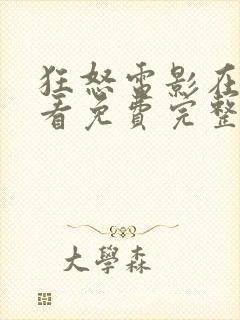 狂怒雷影在
看免费完整
大學森